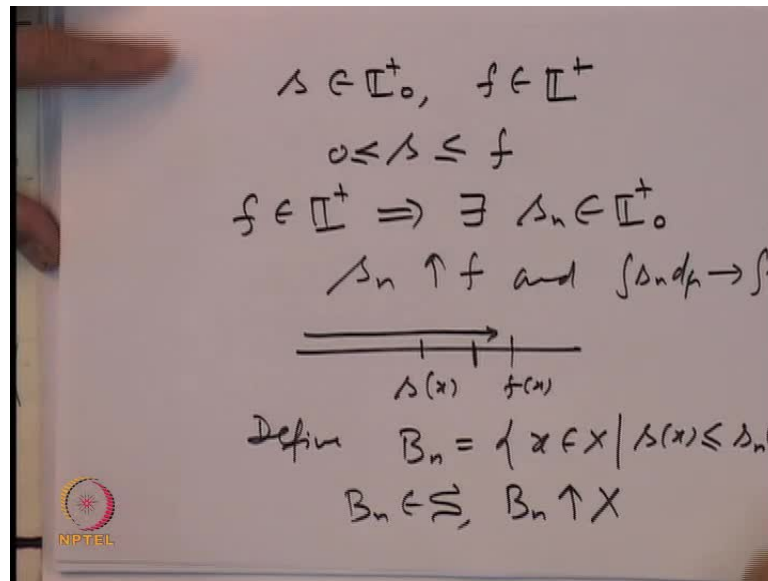 s ∈ 𝕃⁺₀, f ∈ 𝕃⁺
0 ≤ s ≤ f
f ∈ 𝕃⁺ ⇒ ∃ sₙ ∈ 𝕃⁺₀
sₙ ↑ f and ∫sₙdμ → ∫
s(x) f(x)
Define Bₙ = {x ∈ X | s(x) ≤ sₙ(
Bₙ ∈ S, Bₙ ↑ X
NPTEL